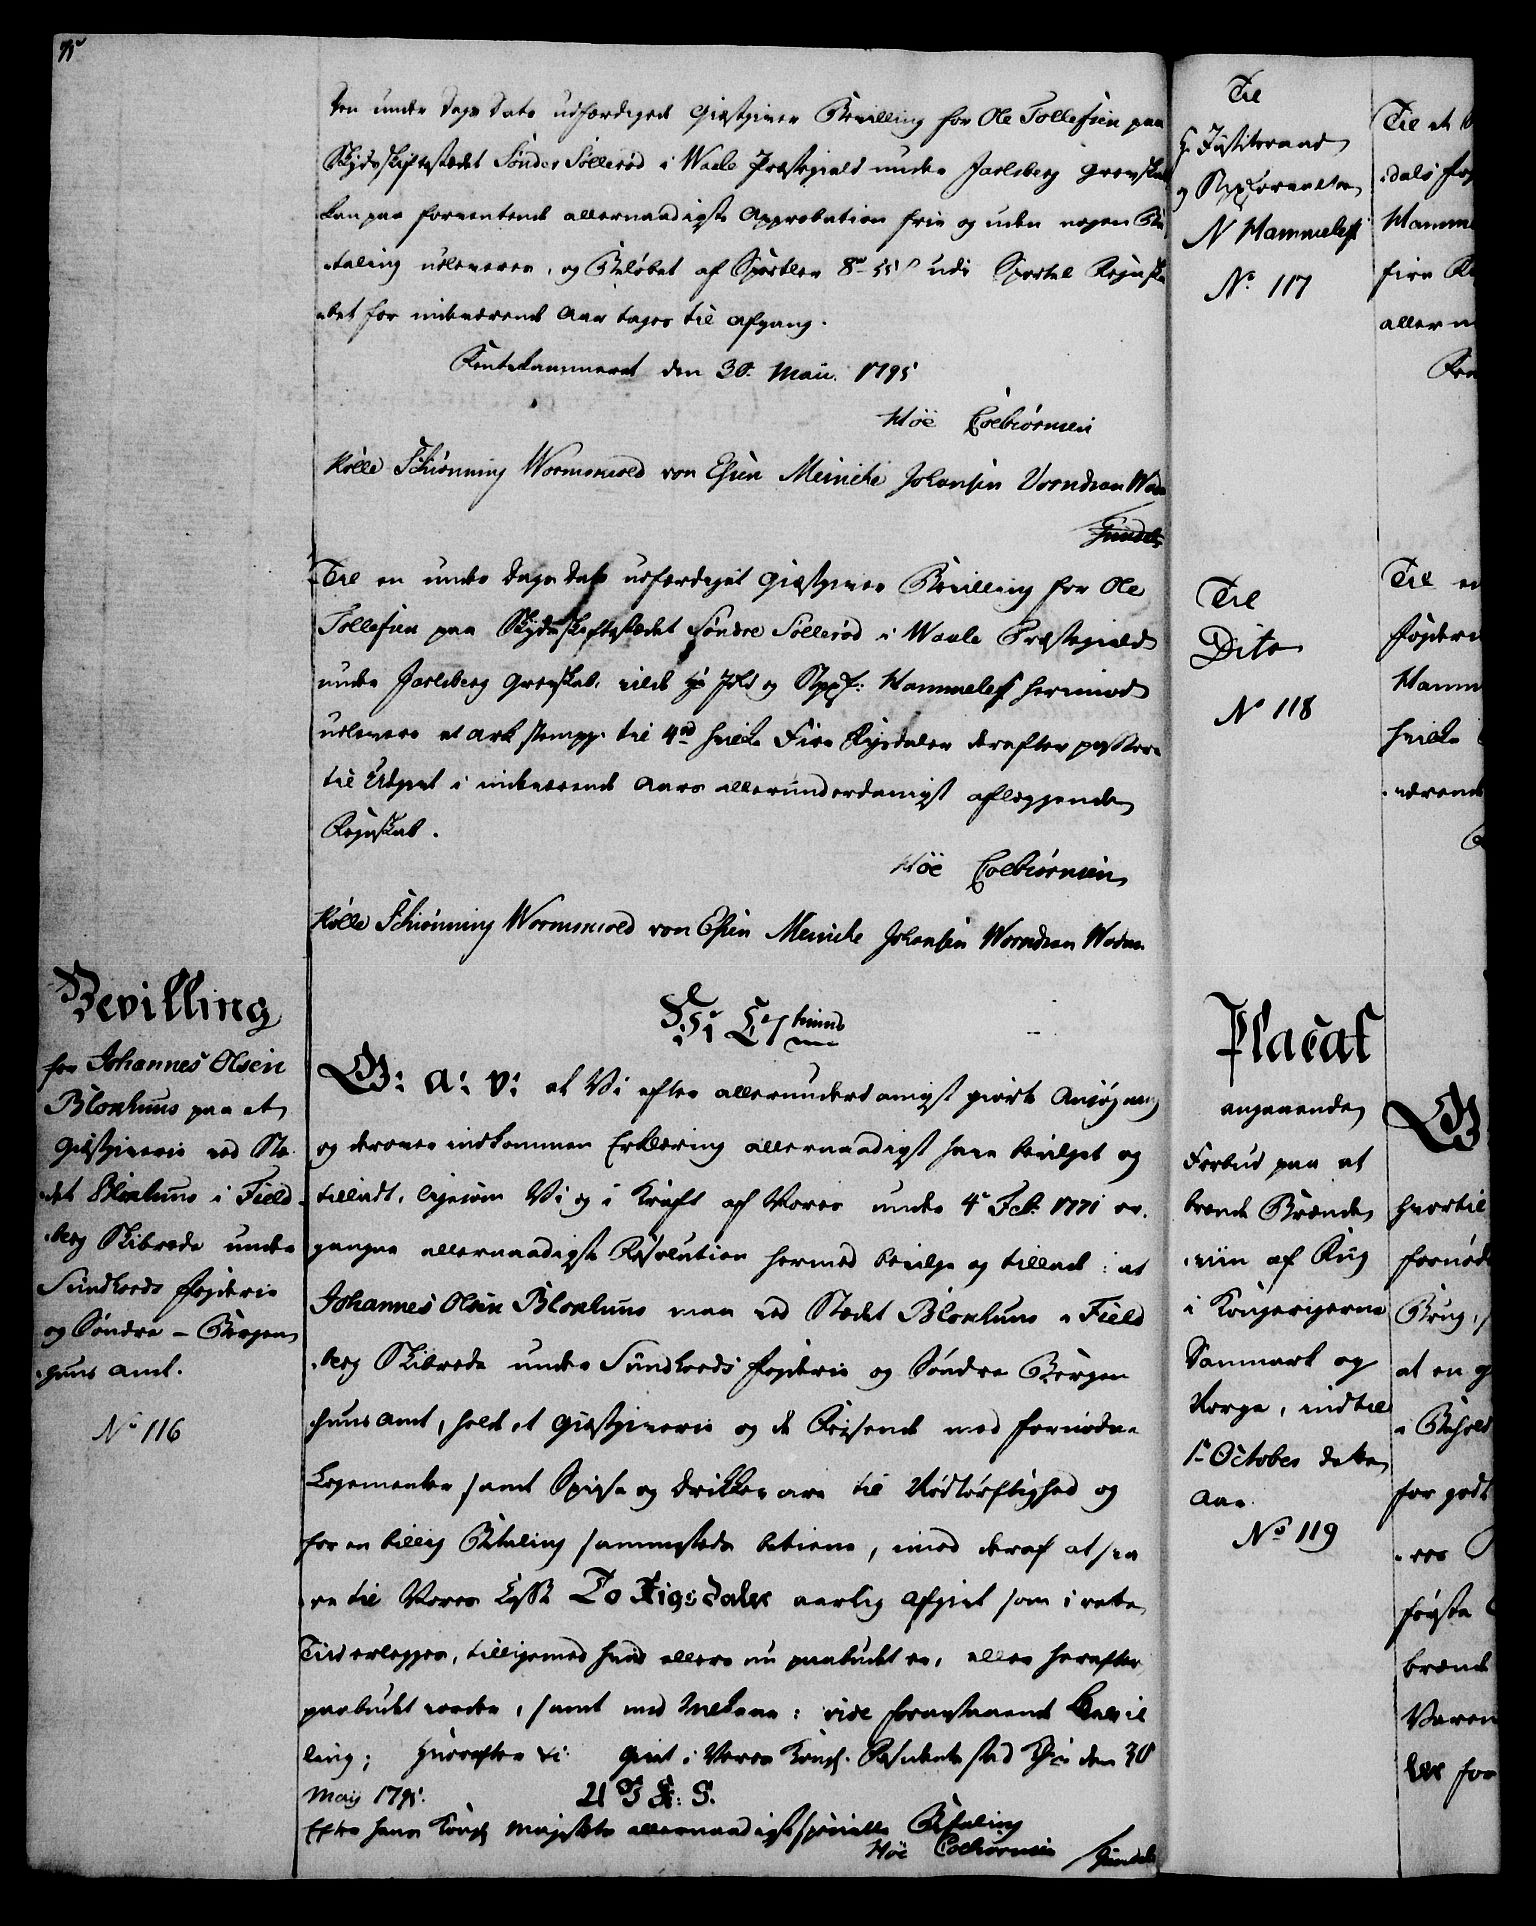 Den under Dags Dato udfærdigede Giæstgiver Bevilling for Ole Tollefsen paa
Skydsskiftestædet Sønder Søllerød i Waale Præstegield under Jarlsberg Grevskab
kan paa forventende allernaadigste Approbation frie og uden nogen Be
taling udleveres, og Beløbet af Sportler 8rd 55s udi Sportel Regnska
bet for indeværende Aar tages til Afgang.
Rentekammeret den 30. Maii 1795
Høë Colbiørnsen
Kølle Schiønning Wormskiold von Essen Meinche Johansen Vorndran
Til en under Dags Dato udfærdiget Giæstgiver Bevilling for Ole
Tollefsen paa Skydsskiftestædet Søndre Søllerød i Waale Præstegield
under Jarlsberg Grevskab, vilde Hammeleff hermed
udlevere et Ark stempp. til 4rd hvilke Fire Rigsdaler derefter passere
til Udgivt i indeværende Aars allerunderdanigst aflæggende
Regnskab.
Høë Colbiørnsen
Kølle Schiønning Wormskiold von Essen Meinche Johansen Worndran
Bevilling
for Johannes Olsen
Bloxhuus paa et
Giæstgiverie ved Ste-
det Bloxhuus i Field-
berg Skibrede under
Sundhords Fogderie
og Søndre - Bergen-
huus Amt.
No 116
G: a: v: at Vi efter allerunderdanigst giorte Ansøgning
og derover indkommen Erklæring allernaadigst have bevilget og
tilladt, ligesom Vi og i Kraft af Vores under 4e Feb. 1771 er-
gangne allernaadigste Resolution hermed bevilge og tillade: at
Johannes Olsen Bloxhuus maa ved Stædet Bloxhuus i Field
berg Skibrede under Sundhords Fogderie og Søndre Bergen
huus Amt, holde et Giæstgiverie og de Reisende med fornødne
Logementer samt Spise og Drikkevare til Nødtørftighed og
for en billig Betaling sammesteds betiene, imod deraf at sva
re til Vores Casse To Rigsdaler aarlig Afgivt som i rette
Tiid erlegges, tilligemed hvad allere nu paabudet er, eller herefter
paabudet worder, samt med Wilkaar: vide foranstaaende Bevil
ling; Hvorefter &c: Givet i Vores Kongl. Residentz Stad Khvn den 30
Maij 1795.
Efter Hans Kongl Majestets allernaadigste specielle Befaling
Høë Colbiørnsen
Til
Hr. Justitsraad
N Hammeleff
No 117
Til
Dito
No 118
Placat
angaaende
Forbud paa at
brænde Brænde-
viin af Rug
i Kongerigerne
Danmark og
Norge, indtil
1e October dette
Aar.
No 119
Til et
Hamme
fire
allern
Til en
Fogderi
Hamm
hvilke
værende
G
hvortil
fornød
Brug,
at en g
i Behold
for godt
første
brænde
Varen